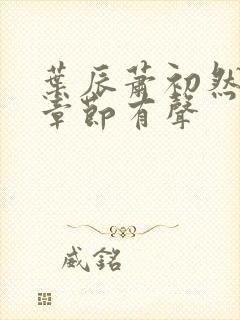 葉辰蕭初然
章節有聲
威銘